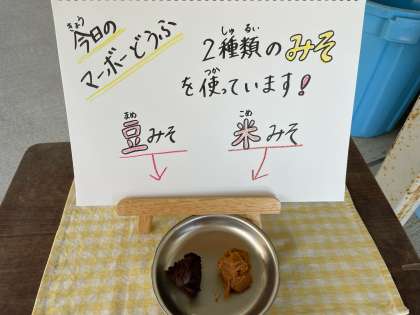 きょう
今日の
マーボーどうふ
しゅ るい
2種類のみそ
つか
を使っています!
まめ
豆みそ
こめ
米みそ